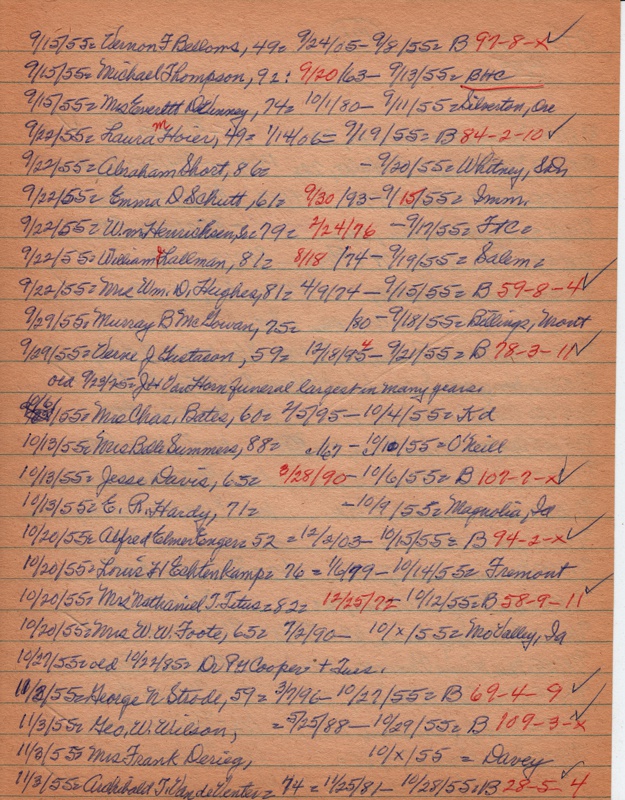 9/15/55= Vernon F Bellows, 49= 9/24/05 - 9/8/55= B 97-8-x ✓
9/15/55= Michael Thompson, 92: 9/20/63 - 9/13/55= BHC
9/15/55= Mrs Everett Kinney, 74= 10/1/80 - 9/11/55= Silverton, Ore
9/22/55= Laura m Hoier, 49= 1/14/06= 9/19/55= B 84-2-10 ✓
9/22/55= Abraham Short, 86= - 9/20/55= Whitney, S.D.
9/22/55= Emma D Schutt, 61= 9/30/93 - 9/15/55= Imm.
9/22/55= Wm Henrichsen, Sr= 79= 2/24/76 - 9/17/55= FtC=
9/22/55= William Lallman, 81= 8/18/74 - 9/19/55= Salem=
9/22/55= Mrs Wm. D. Hughes, 81= 4/9/74 - 9/15/55= B 59-8-4 ✓
9/29/55= Murray B McGowan, 75= /80 - 9/18/55= Billings, Mont
9/29/55= Verne J Gustason, 59= 12/18/95 - 9/21/55= B 78-3-11 ✓
old 9/23/25= J H Van Horn funeral largest in many years.
10/6/55= Mrs Chas. Bates, 60= 2/5/95 - 10/4/55= Kd
10/13/55= Mrs Belle Summers, 88= /67 - /55= O'Neill
10/13/55= Jesse Davis, 65= 3/28/90 - 10/6/55= B 107-7-x ✓
10/13/55= E. R. Hardy, 71= - 10/9/55= Magnolia, Ia
10/20/55= Alfred Elmer Enger= 52 = 12/2/03 - 10/15/55= B 94-2-x ✓
10/20/55= Louis H Echtenkamp= 76 = 1/6/99 - 10/14/55= Fremont
10/20/55= Mrs Nathaniel T. Titus= 82= 12/25/72 10/12/55= B 58-9-11 ✓
10/20/55= Mrs. W. W. Foote, 65= 7/2/90 - 10/x/55= Mo Valley, Ia
10/27/55= old 10/22/85= Dr P G Cooper: + Tues.
11/3/55= George N Strode, 59 = 3/7/96 - 10/27/55= B 69-4-9 ✓
11/3/55= Geo. W. Wilson, = 5/25/88 - 10/29/55= B 109-3-x ✓
11/3/55= Mrs Frank Derieg, 10/x/55 = Davey
11/3/55= Archibald T. Van de Venter= 74 = 11/25/81 - 10/28/55= B 28-5-4 ✓